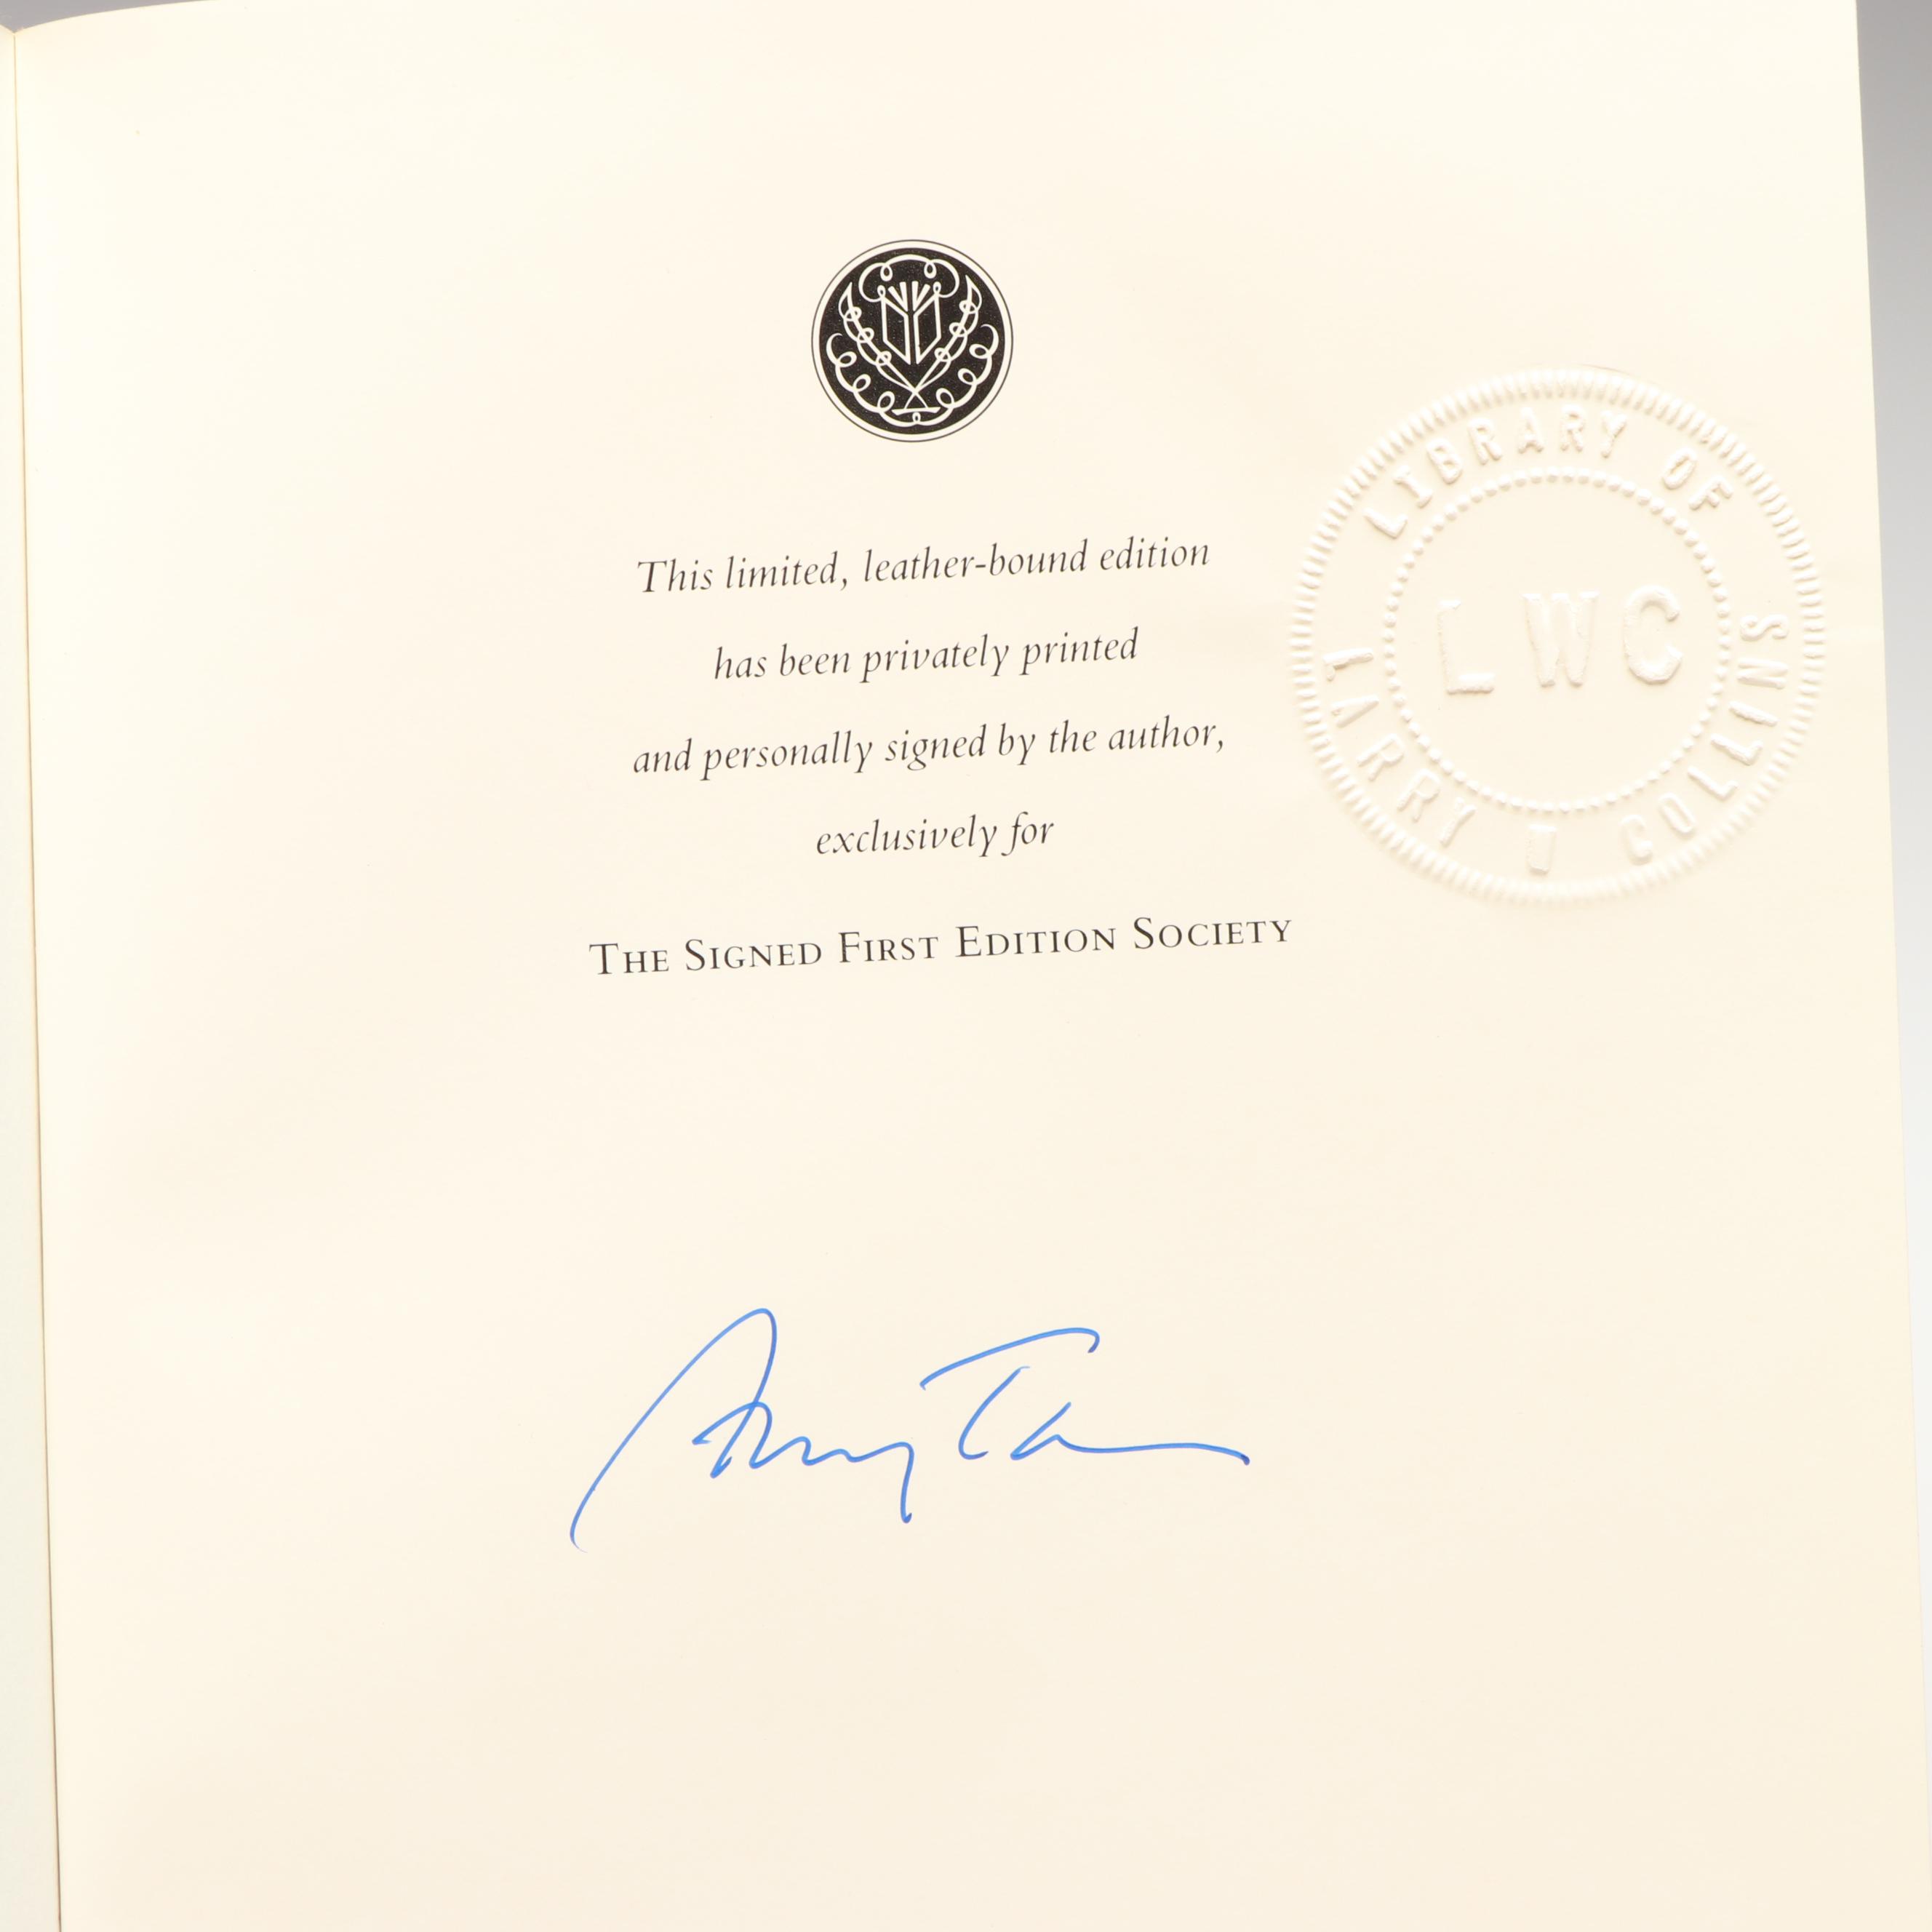 This limited, leather-bound edition
has been privately printed
and personally signed by the author,
exclusively for
THE SIGNED FIRST EDITION SOCIETY
LIBRARY OF
LWC
LARRY W COLLINS
Amy Tan